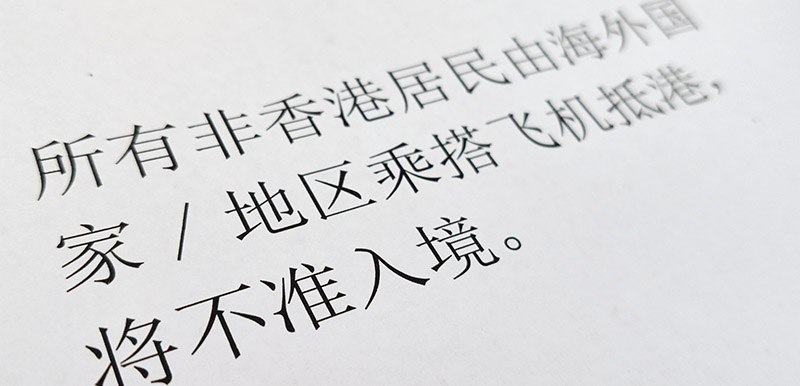 所有非香港居民由海外国
家 / 地区乘搭飞机抵港，
将不准入境。